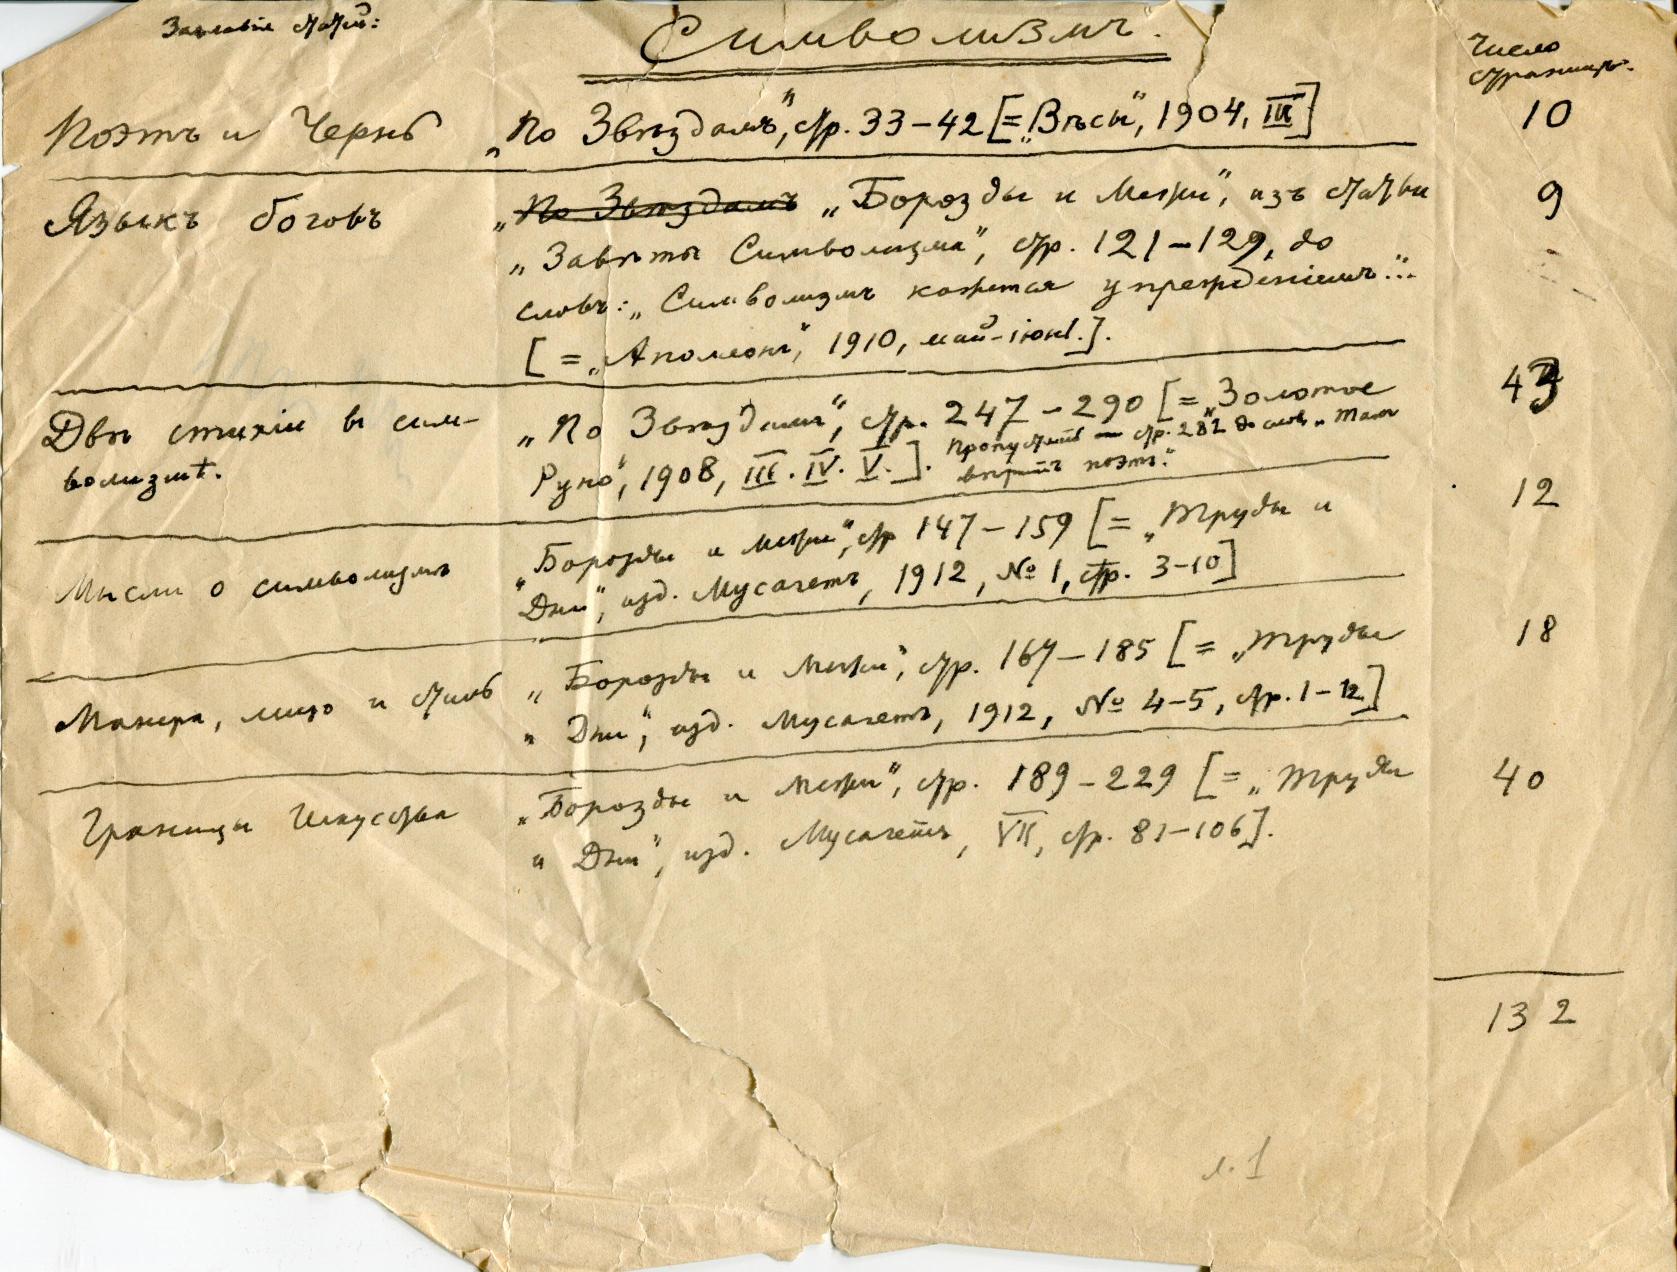 Заглавіе статей:
Символизмъ.
Число
страницъ.
Поэтъ и Чернь „По Звѣздамъ“, стр. 33–42 [= „Вѣсы“, 1904, III] 10
Языкъ боговъ „По Звѣздамъ „Борозды и Межи“, изъ статьи 9
„Завѣты Символизма“, стр. 121–129, до
словъ: „Символизмъ кажется упрежденіемъ...“
[= „Аполлонъ“, 1910, май-іюнь].
Двѣ стихіи въ сим- „По Звѣздамъ“, стр. 247–290 [= „Золотое 43
волизмѣ. Руно“, 1908, III. IV. V.]. Пропустить — стр. 282 до словъ „Такъ
вѣритъ поэтъ“.
Мысли о символизмѣ „Борозды и межи“, стр 147–159 [= „Труды и 12
Дни“, изд. Мусагетъ, 1912, № 1, стр. 3–10]
Манера, лицо и стиль „Борозды и Межи“, стр. 167–185 [= „Труды 18
и Дни“, изд. Мусагетъ, 1912, № 4–5, стр. 1–12]
Границы Искусства „Борозды и Межи“, стр. 189–229 [= „Труды 40
и Дни“, изд. Мусагетъ, VII, стр. 81–106].
132
л. 1